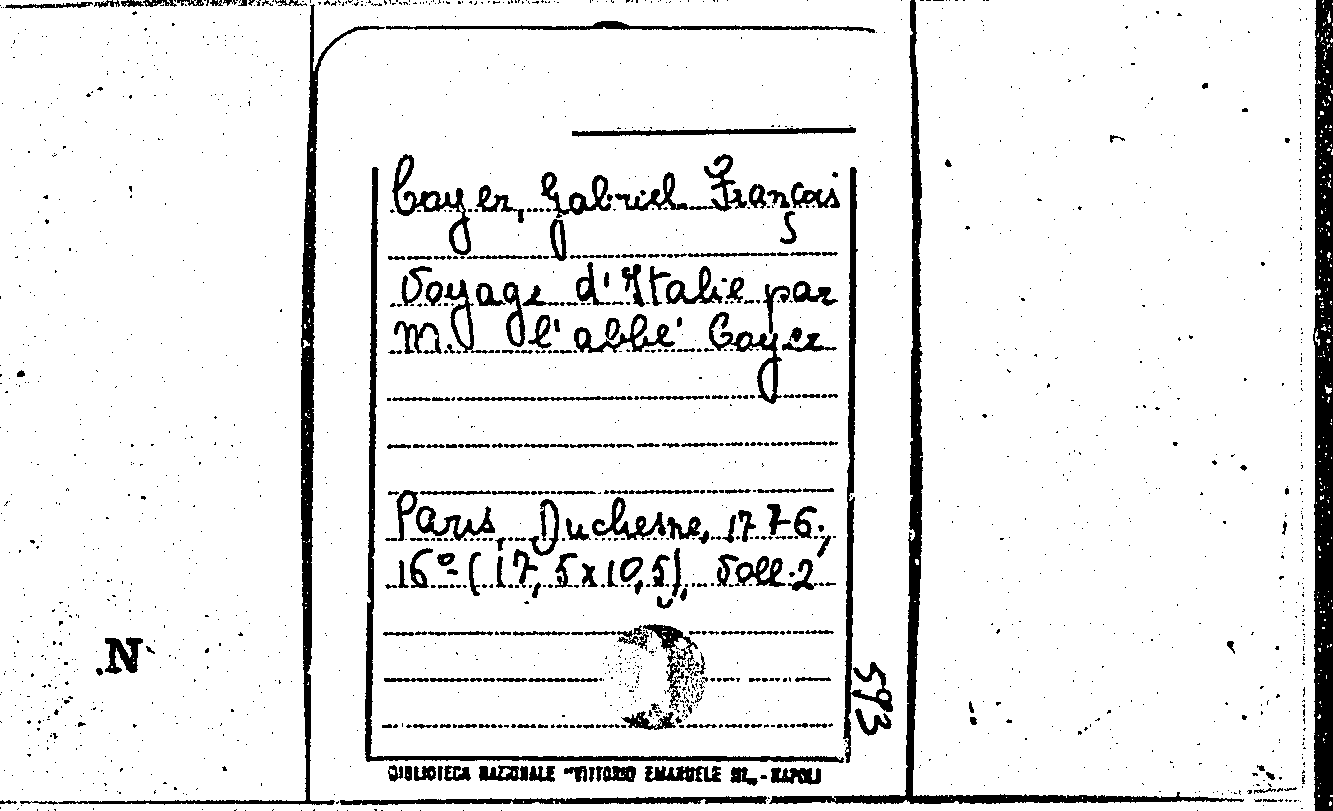 Coyer, Gabriel François
Voyage d'Italie par
M. l'abbé Coyer
Paris, Duchesne, 1776,
16º (17,5x10,5), Voll. 2
593
N
BIBLIOTECA NAZIONALE "VITTORIO EMANUELE III„ - NAPOLI